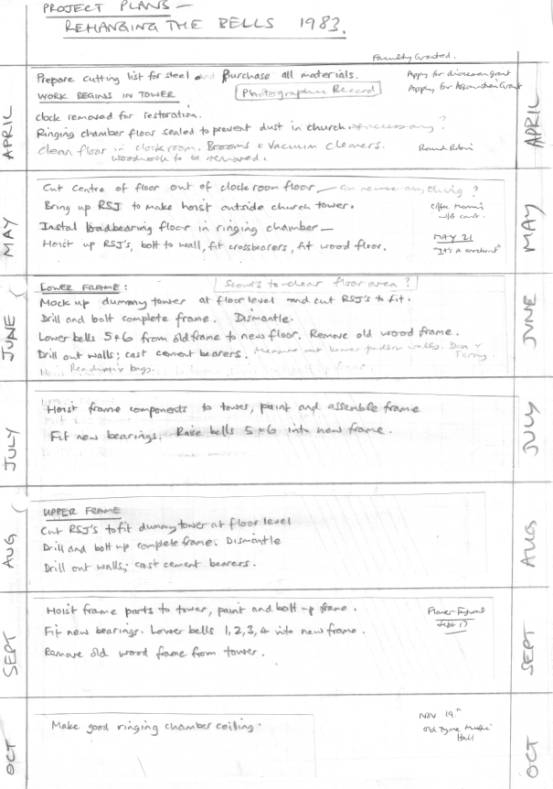 PROJECT PLANS —
REHANGING THE BELLS 1983.
Faculty Granted.
APRIL
Prepare cutting list for steel and Purchase all materials.
WORK BEGINS IN TOWER
Photographic Record
Apply for
Apply for Grant
clock removed for restoration.
Ringing chamber floor sealed to prevent dust in church
Clean floor in clockroom. Brooms & Vacuum Cleaners.
Woodwork to be removed.
APRIL
MAY
Cut Centre of floor out of clockroom floor
Bring up RSJ to make hoist outside church tower.
Instal loadbearing floor in ringing chamber —
Hoist up RSJ's, bolt to wall, fit crossbearers, fit wood floor.
MAY 21
"It's a
MAY
JUNE
LOWER FRAME:
Scouts to clear floor area?
Mock up dummy tower at floor level and cut RSJ's to fit.
Drill and bolt complete frame. Dismantle.
Lower bells 5+6 from old frame to new floor. Remove old wood frame.
Drill out walls; cast cement bearers.
JUNE
JULY
Hoist frame components to tower, paint and assemble frame
Fit new bearings. Raise bells 5+6 into new frame.
JULY
AUG
UPPER FRAME
Cut RSJ's to fit dummy tower at floor level
Drill and bolt up complete frame. Dismantle
Drill out walls; cast cement bearers.
AUG
SEPT
Hoist frame parts to tower, paint and bolt up frame.
Fit new bearings. Lower bells 1, 2, 3, 4 into new frame.
Remove old wood frame from tower.
Flower Festival
Sept 17
SEPT
OCT
Make good ringing chamber ceiling.
NOV 19th
Old Tyme Music
Hall
OCT